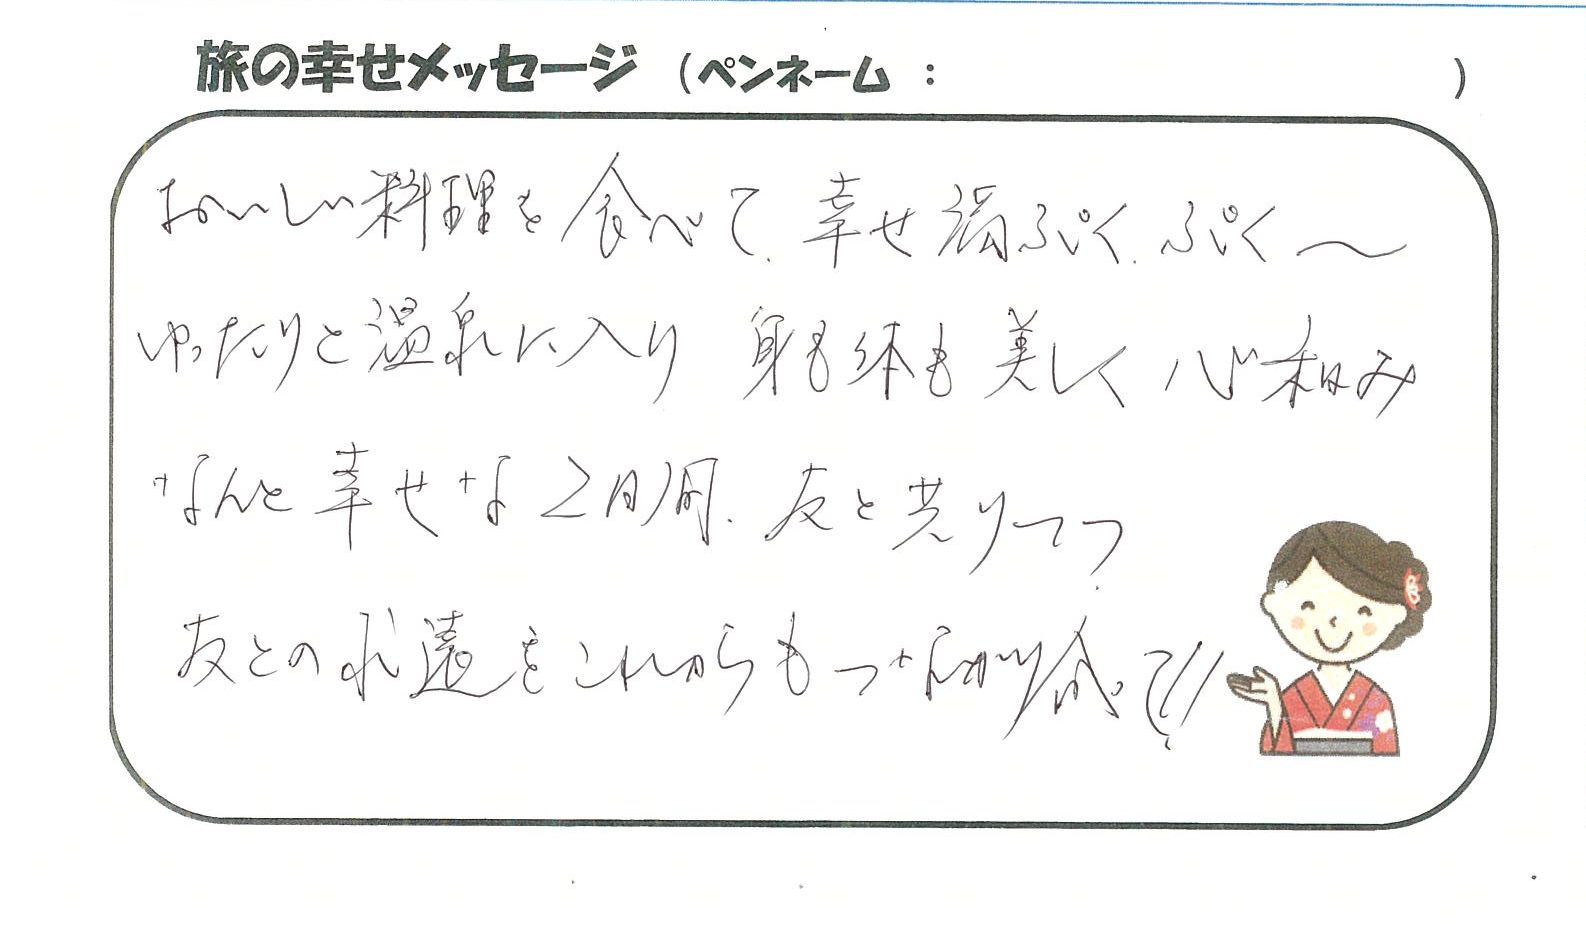 旅の幸せメッセージ (ペンネーム : )
おいしい料理を食べて、幸せ満ぷく、ぷく〜
ゆったりと温泉に入り 身も体も美しく 心和み
なんと幸せな2日間、友と共りつつ
友との永遠をこれからもつながり合って!!